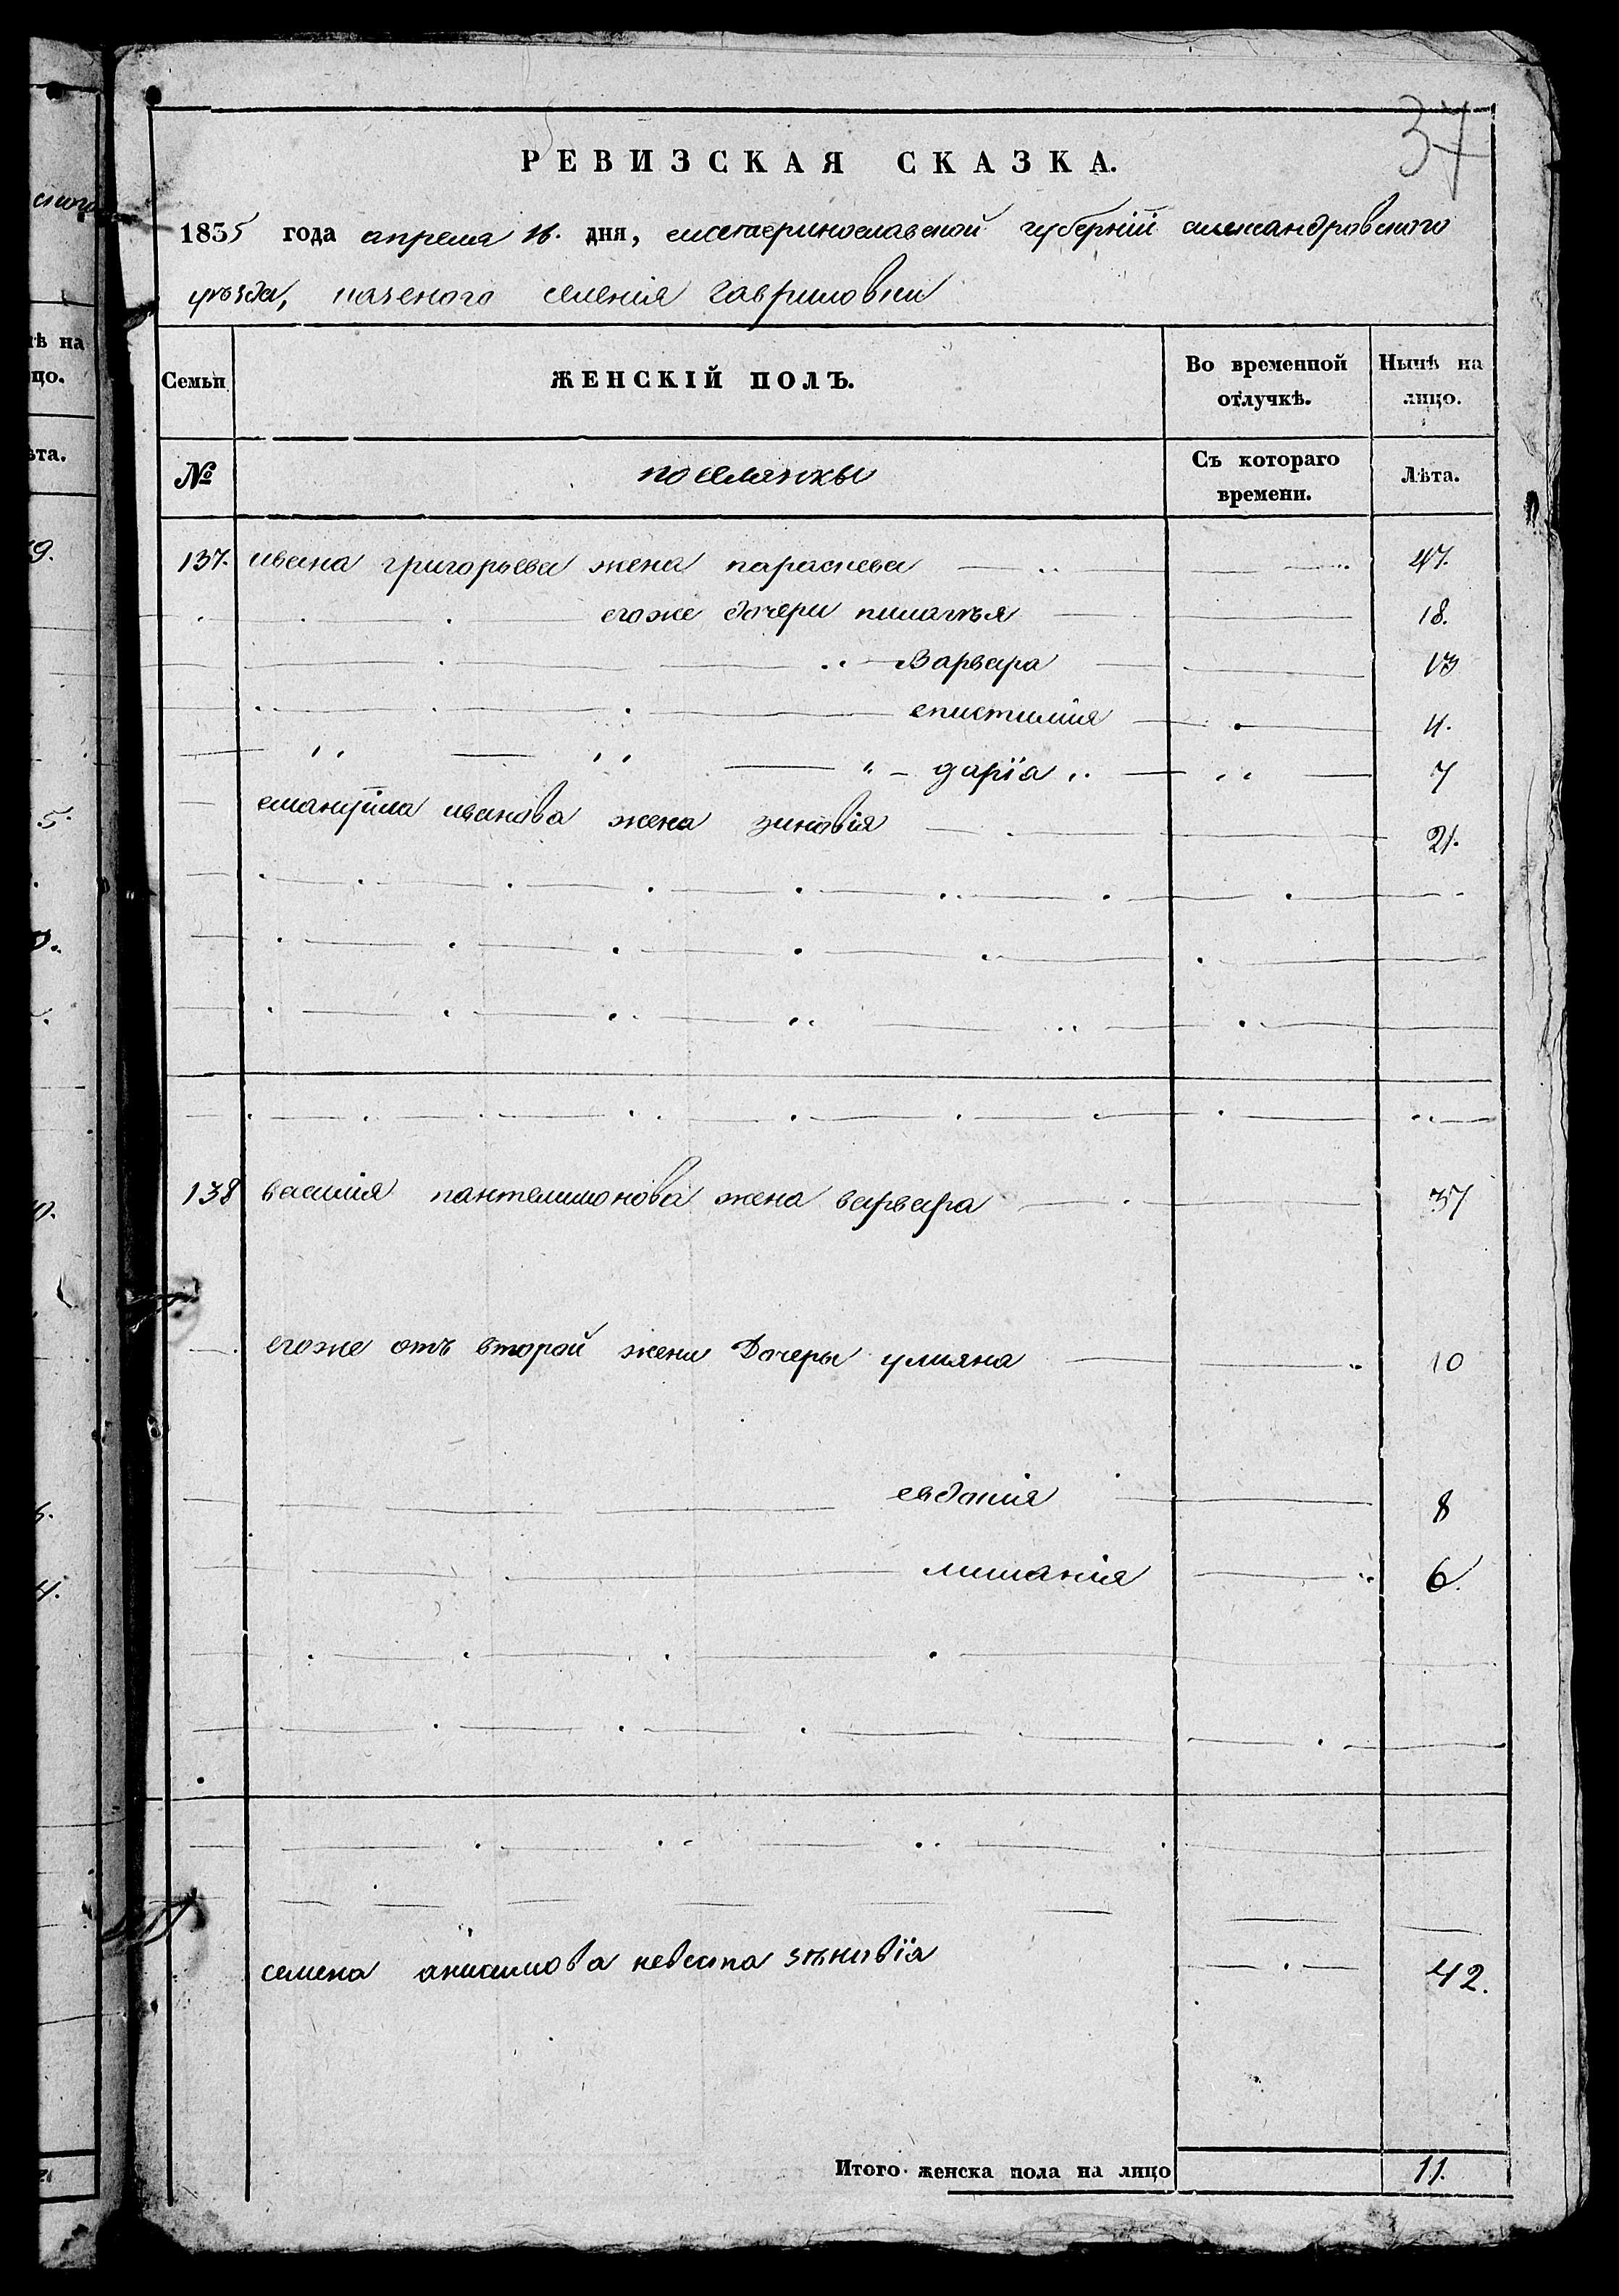 37
РЕВИЗСКАЯ СКАЗКА.
1835 года апреля 16. дня, екатеринославской губернїй александровского
уезда, казеного селенія гавриловки
Семьи ЖЕНСКІЙ ПОЛЪ. Во временной отлучкѣ. Нынѣ на лицо.
№ поселянкы Съ котораго времени. Лѣта.
137. ивана григорьева жена параскева 47.
егоже дочери пилагѣя 18.
Варвара 13
епистимия 11.
дарїа 7
емануйла иванова жена зиновія 21.
138 василия пантелимонова жена варвара 37
егоже отъ второй жени Дочеры улияна 10
евдокия 8
6.
семена анисимова невестка 42.
Итого женска пола на лицо 11.